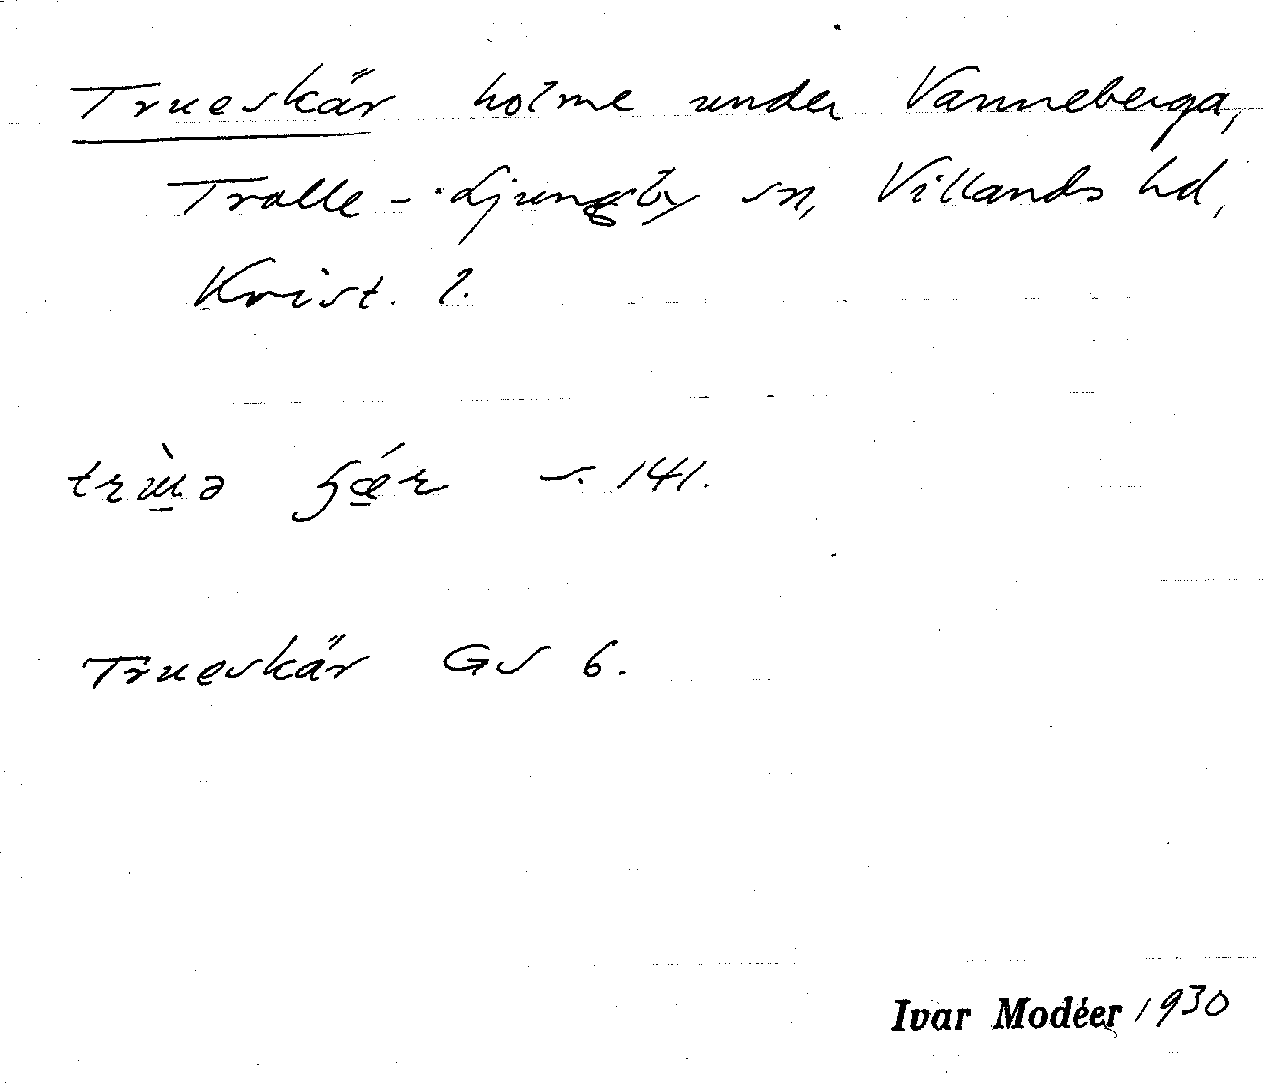 Trueskär holme under Vanneberga,
Trolle-Ljungby sn, Villands hd,
Krist. l.
s. 141.
Trueskär GS 6.
Ivar Modéer 1930